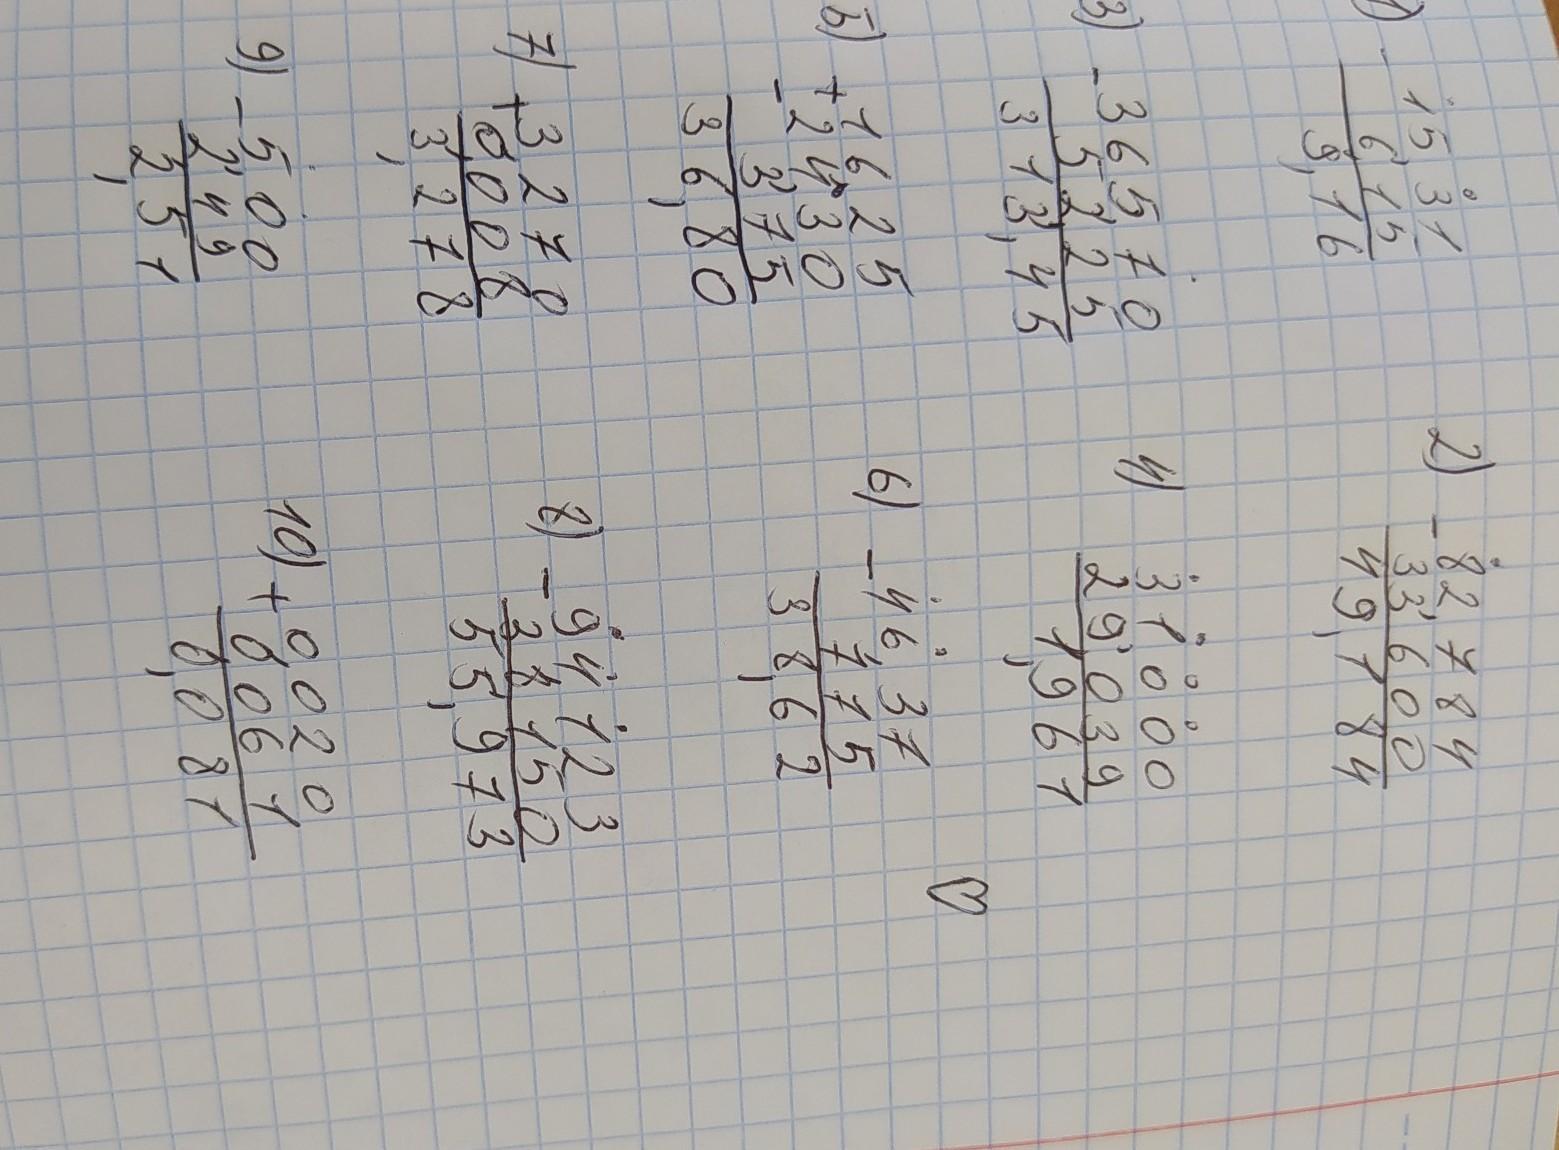 1) - 15 31
6,15
9,16
2) - 82 784
33,600
49,184
3) - 365 70
52,25
313,45
4) 31 000
29,039
1,961
5) + 16 25
- 24,30
3,75
36,80
6) - 46 37
7,75
38,62
7) + 3 270
0,008
3,278
8) - 94 123
38,150
55,973
9) - 5 00
2,49
2,51
10) + 0 020
0,061
0,081